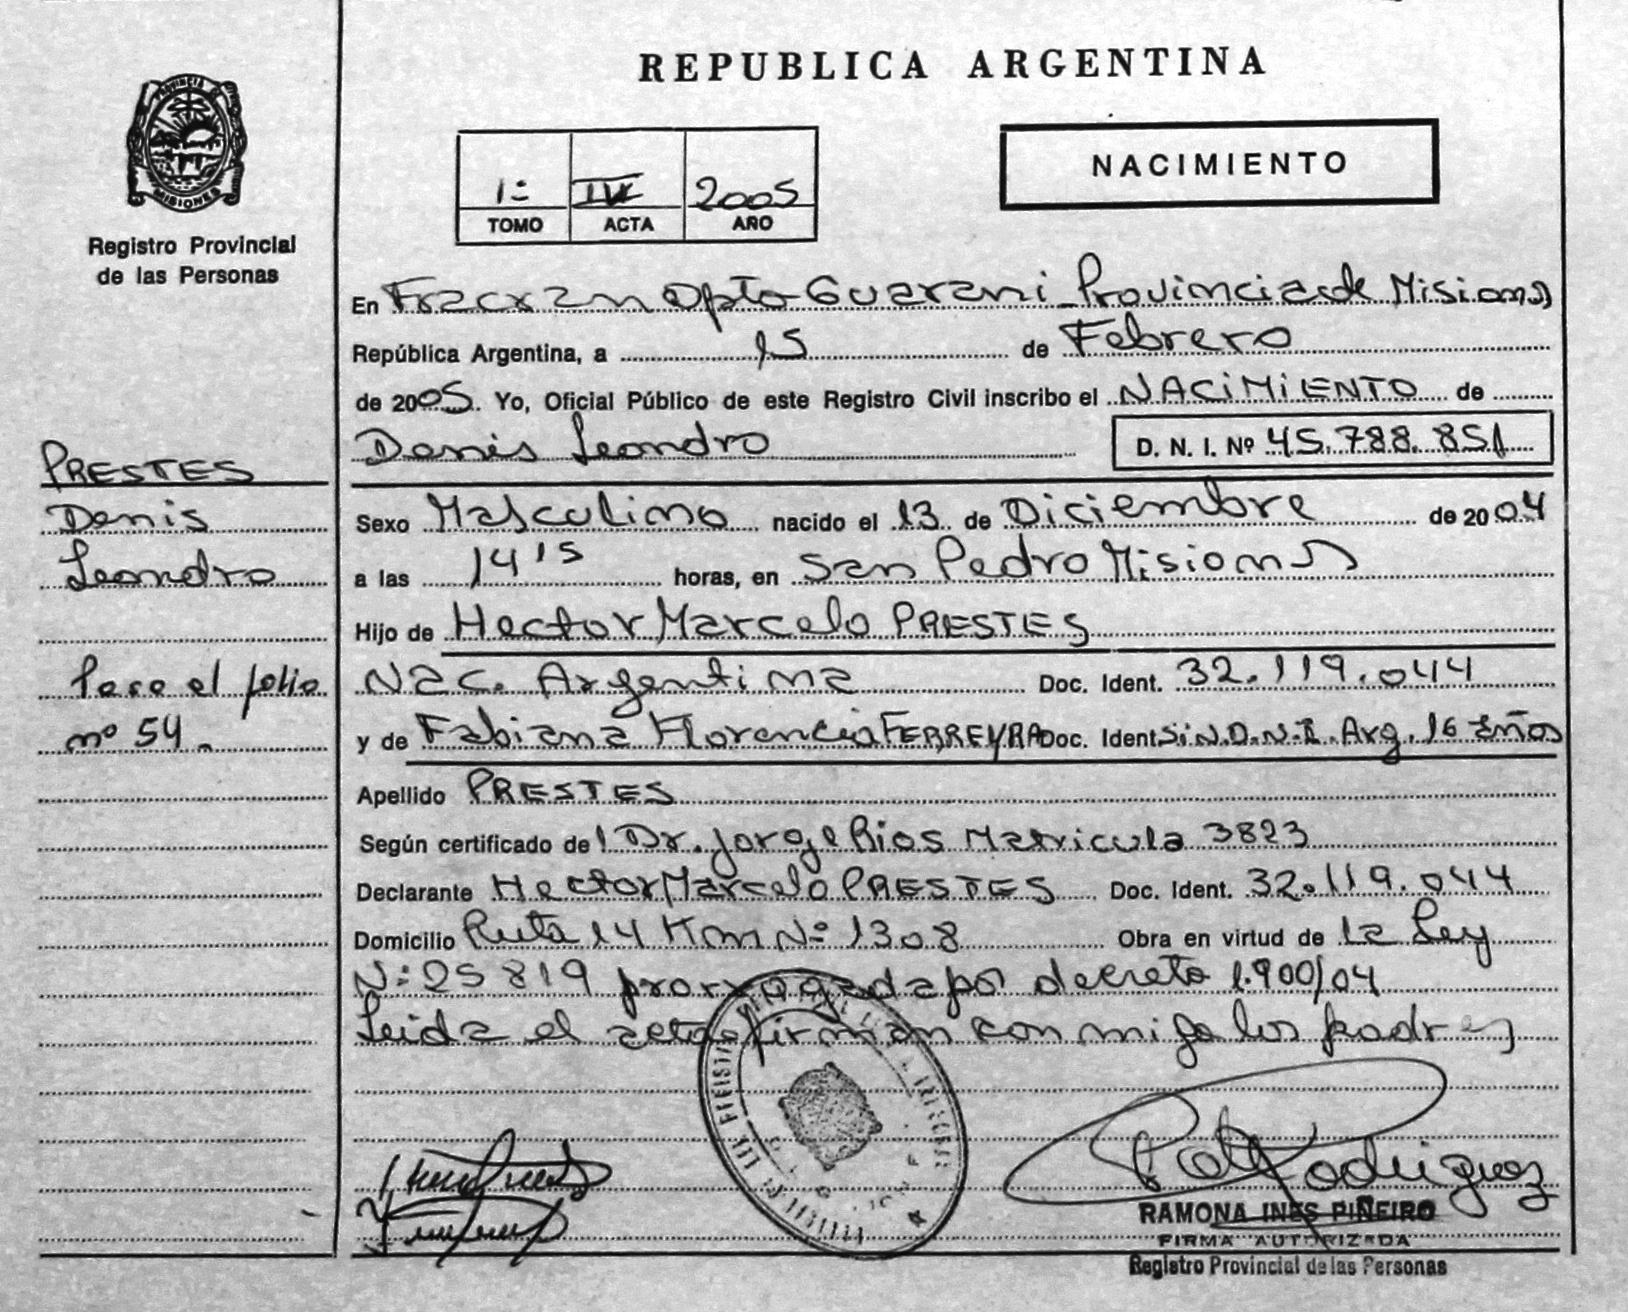 PROVINCIA DE
MISIONES
Registro Provincial
de las Personas
PRESTES
Denis
Leandro
Pasa al folio
nº 54.
REPUBLICA ARGENTINA
1º IV 2005
TOMO ACTA AÑO
NACIMIENTO
En Fracran Dpto Guarani Provincia de Misiones
República Argentina, a 15 de Febrero
de 2005. Yo, Oficial Público de este Registro Civil inscribo el NACIMIENTO de
Denis Leandro D. N. I. Nº 45.788.851
Sexo Masculino nacido el 13 de Diciembre de 2004
a las 14 15 horas, en San Pedro Misiones
Hijo de Hector Marcelo PRESTES
Nac. Argentina Doc. Ident. 32.119.044
y de Fabiana Florencia FERREYRA Doc. Ident. Sin D.N.I. Arg. 16 años
Apellido PRESTES
Según certificado del Dr. Jorge Rios Matricula 3823
Declarante Hector Marcelo PRESTES Doc. Ident. 32.119.044
Domicilio Ruta 14 Km Nº 1308 Obra en virtud de la Ley
Nº 25819 prorrogada por decreto 1.900/04
Leida el acta firman conmigo los padres
Rodriguez
RAMONA INES PIÑEIRO
FIRMA AUTORIZADA
Registro Provincial de las Personas